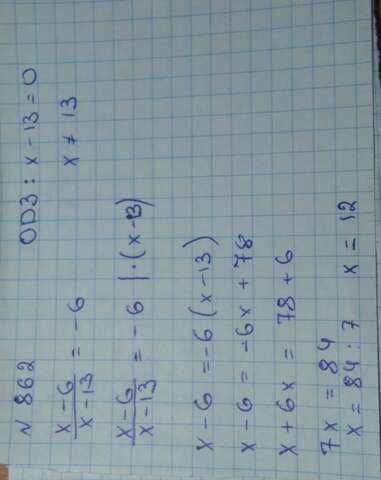 N 862 ОДЗ: x - 13 = 0
x ≠ 13
(x - 6)/(x - 13) = - 6
(x - 6)/(x - 13) = - 6 | · (x - 13)
x - 6 = -6 (x - 13)
x - 6 = -6x + 78
x + 6x = 78 + 6
7x = 84
x = 84 : 7 x = 12